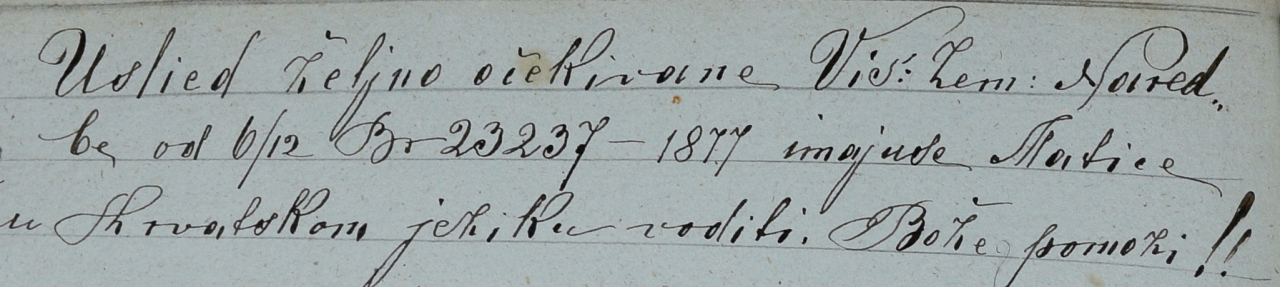 Uslied željno očekivane Vis: Zem: Nared„
be od 6/12 Br 23237 – 1877 imajuse Matice
u Hrvatskom jeziku voditi. Bože pomozi!!